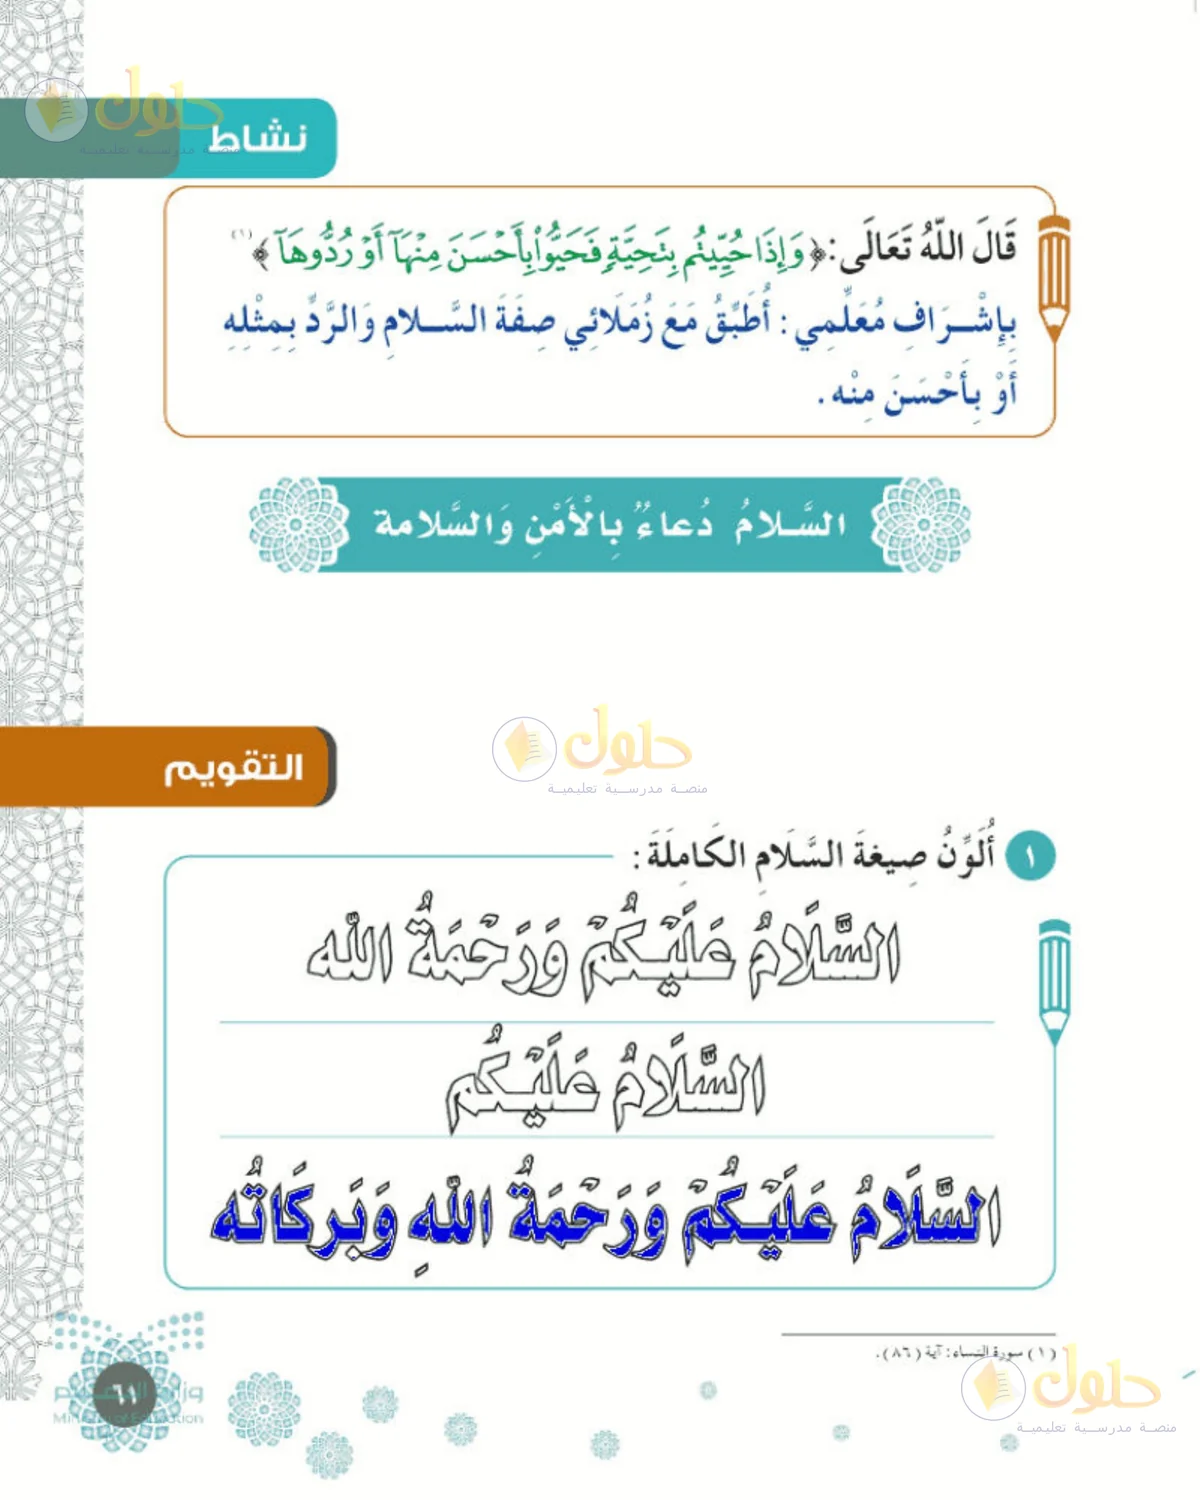 حلول
منصة مدرسية تعليمية
نشاط
قَالَ اللّهُ تَعَالَى: ﴿وَإِذَا حُيِّيتُم بِتَحِيَّةٍ فَحَيُّوا۟ بِأَحْسَنَ مِنْهَآ أَوْ رُدُّوهَآ﴾ (١)
بِإِشْرَافِ مُعَلِّمِي : أُطَبِّقُ مَعَ زُمَلَائِي صِفَةَ السَّلامِ وَالرَّدِّ بِمِثْلِهِ
أَوْ بِأَحْسَنَ مِنْه .
السَّلامُ دُعاءٌ بِالْأَمْنِ وَالسَّلامة
حلول
منصة مدرسية تعليمية
التقويم
١ أُلَوِّنُ صِيغةَ السَّلَامِ الكَامِلَةَ :
السَّلَامُ عَلَيْكُمْ وَرَحْمَةُ اللّه
السَّلَامُ عَلَيْكُم
السَّلَامُ عَلَيْكُمْ وَرَحْمَةُ اللّهِ وَبَركَاتُه
(١) سورة النساء: آية (٨٦).
حلول
منصة مدرسية تعليمية
٦١
Ministry of Education